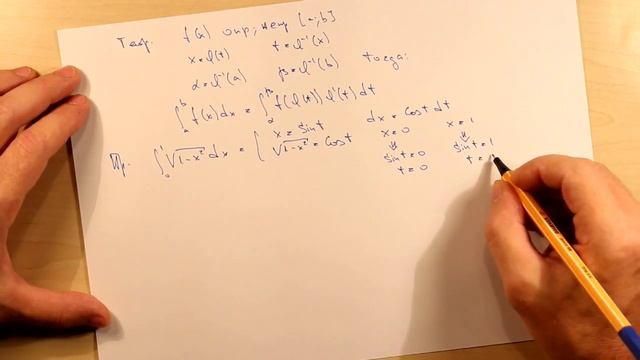 Теор. f(x) опр, непр [a;b]
x = φ(t) t = φ⁻¹(x)
α = φ⁻¹(a) β = φ⁻¹(b) тогда:
∫ₐᵇ f(x)dx = ∫_α^β f(φ(t)) φ'(t) dt
Пр. ∫₀¹ √1-x² dx = { x = sin t dx = cos t dt
√1-x² = cos t x = 0 x = 1
⇓ ⇓
sin t = 0 sin t = 1
t = 0 t =